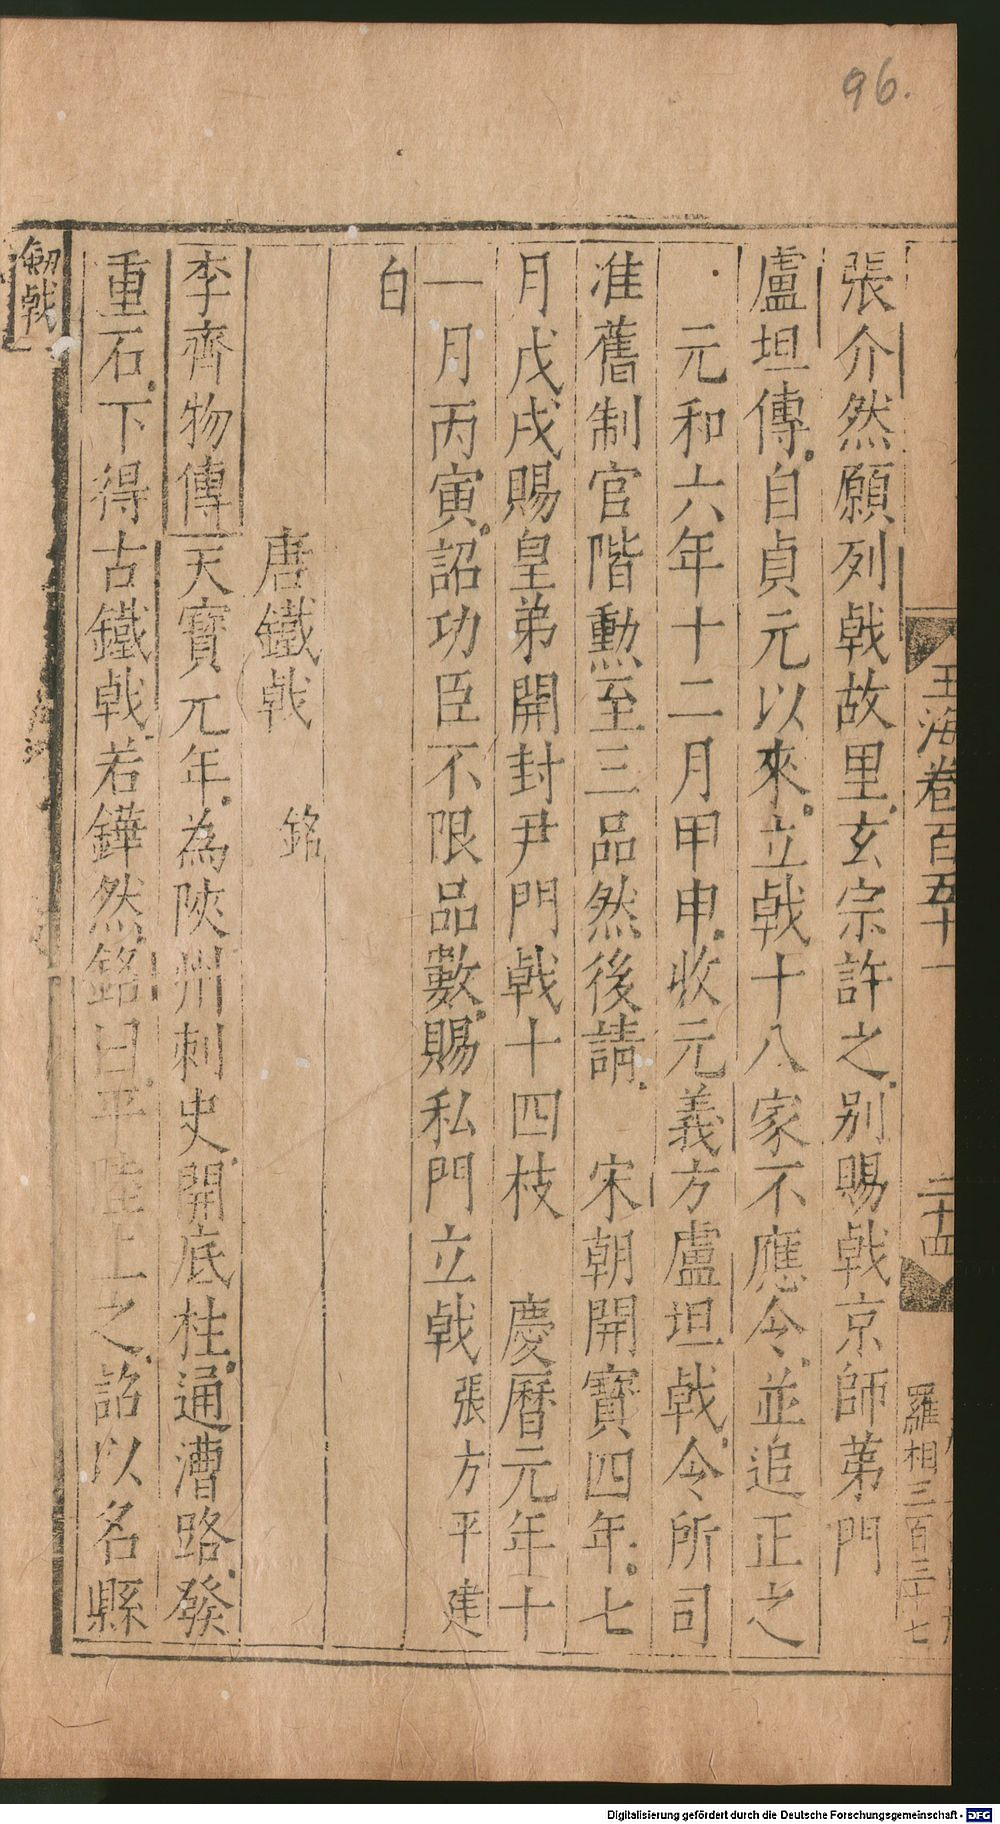 96.
玉海卷百五十一
二十四
羅相三百三十七
張介然願列戟故里玄宗許之別賜戟京師苐門
盧坦傳自貞元以來立戟十八家不應令並追正之
元和六年十二月甲申收元義方盧坦戟令所司
准舊制官階勳至三品然後請 宋朝開寶四年七
月戊戌賜皇弟開封尹門戟十四枝 慶曆元年十
一月丙寅詔功臣不限品數賜私門立戟張方平建
白
唐鐵戟 銘
李齊物傳天寶元年為陝州刺史開底柱通漕路發
重石下得古鐵戟若鏵然銘曰平陸上之詔以名縣
劔戟
Digitalisierung gefördert durch die Deutsche Forschungsgemeinschaft - DFG